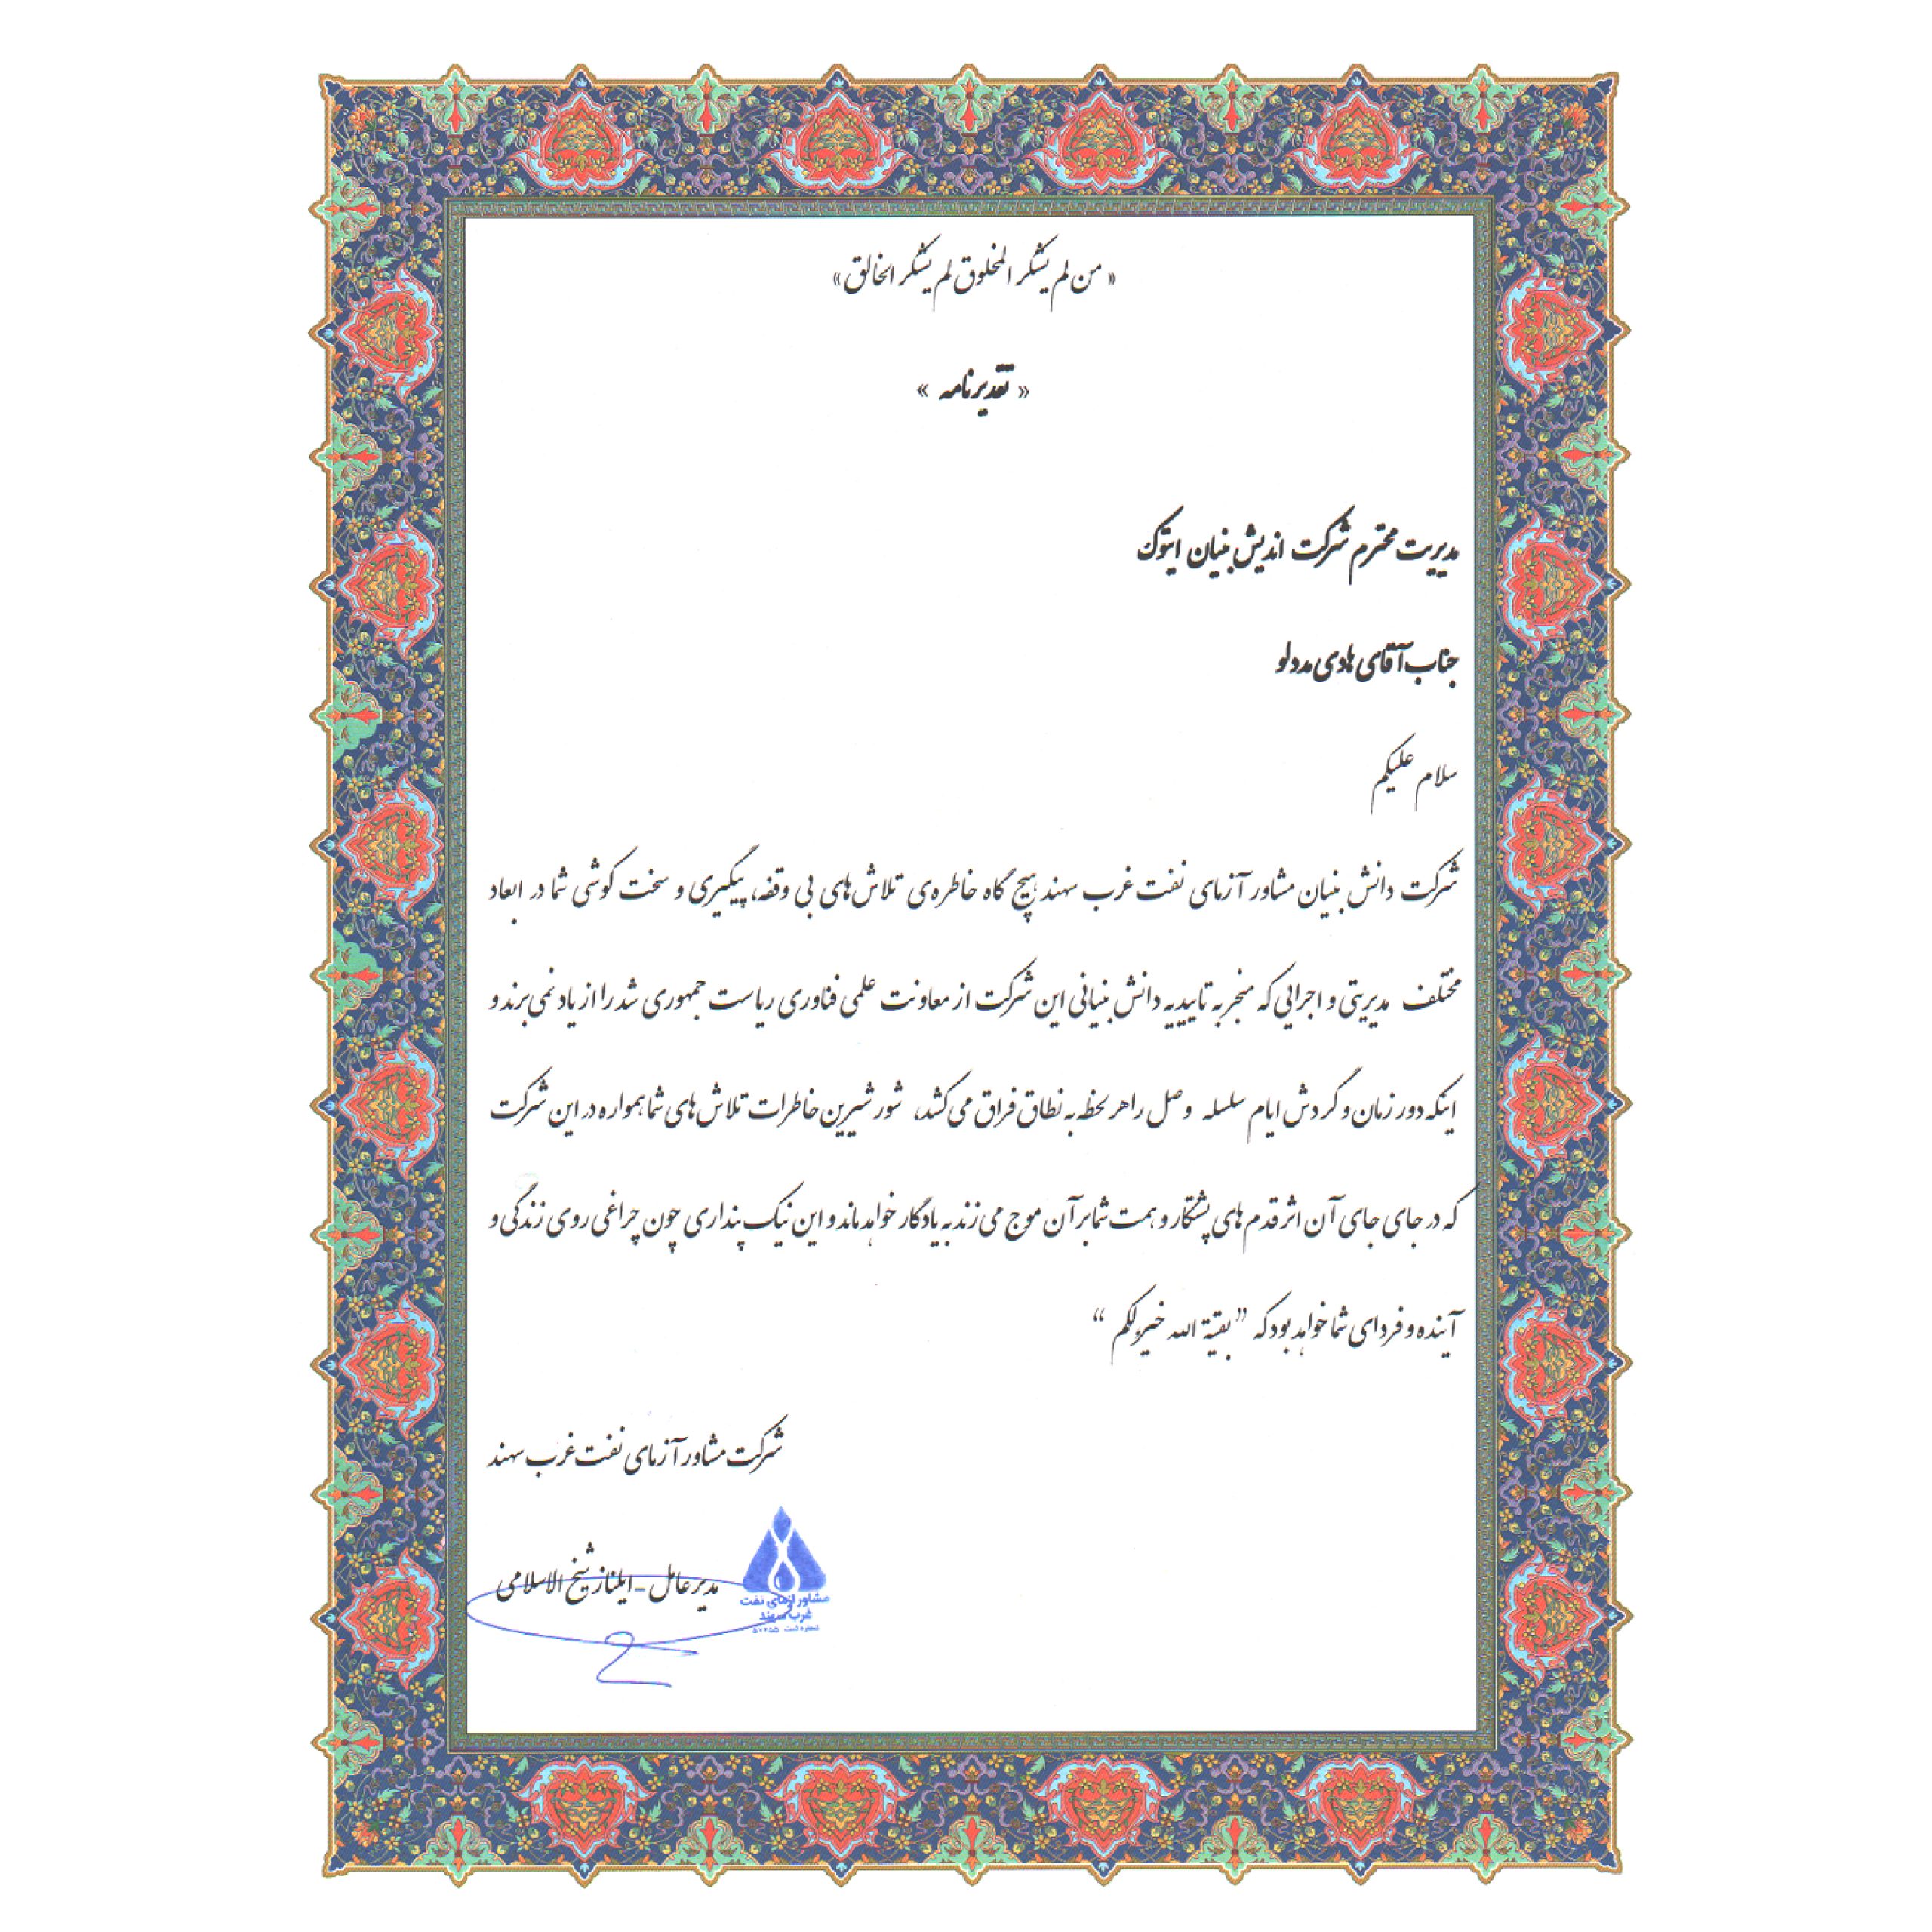 « من لم یشکر المخلوق لم یشکر الخالق »
« تقدیرنامه »
مدیریت محترم شرکت اندیش بنیان ایتوک
جناب آقای هادی مددلو
سلام علیکم
شرکت دانش بنیان مشاور آزمای نفت غرب سهند هیچ گاه خاطره‌ی تلاش‌های بی وقفه، پیگیری و سخت کوشی شما در ابعاد
مختلف مدیریتی و اجرایی که منجر به تاییدیه دانش بنیانی این شرکت از معاونت علمی فناوری ریاست جمهوری شد را از یاد نمی برند و
اینکه دور زمان و گردش ایام سلسله وصل را هر لحظه به نطاق فراق می کشد، شور شیرین خاطرات تلاش های شما همواره در این شرکت
که در جای جای آن اثر قدم های پشتکار و همت شما بر آن موج می زند به یادگار خواهد ماند و این نیک پنداری چون چراغی روی زندگی و
آینده و فردای شما خواهد بود که ”بقیة الله خیر لکم“
شرکت مشاور آزمای نفت غرب سهند
مدیر عامل - ایلناز شیخ الاسلامی
مشاور آزمای نفت
غرب سهند
شماره ثبت